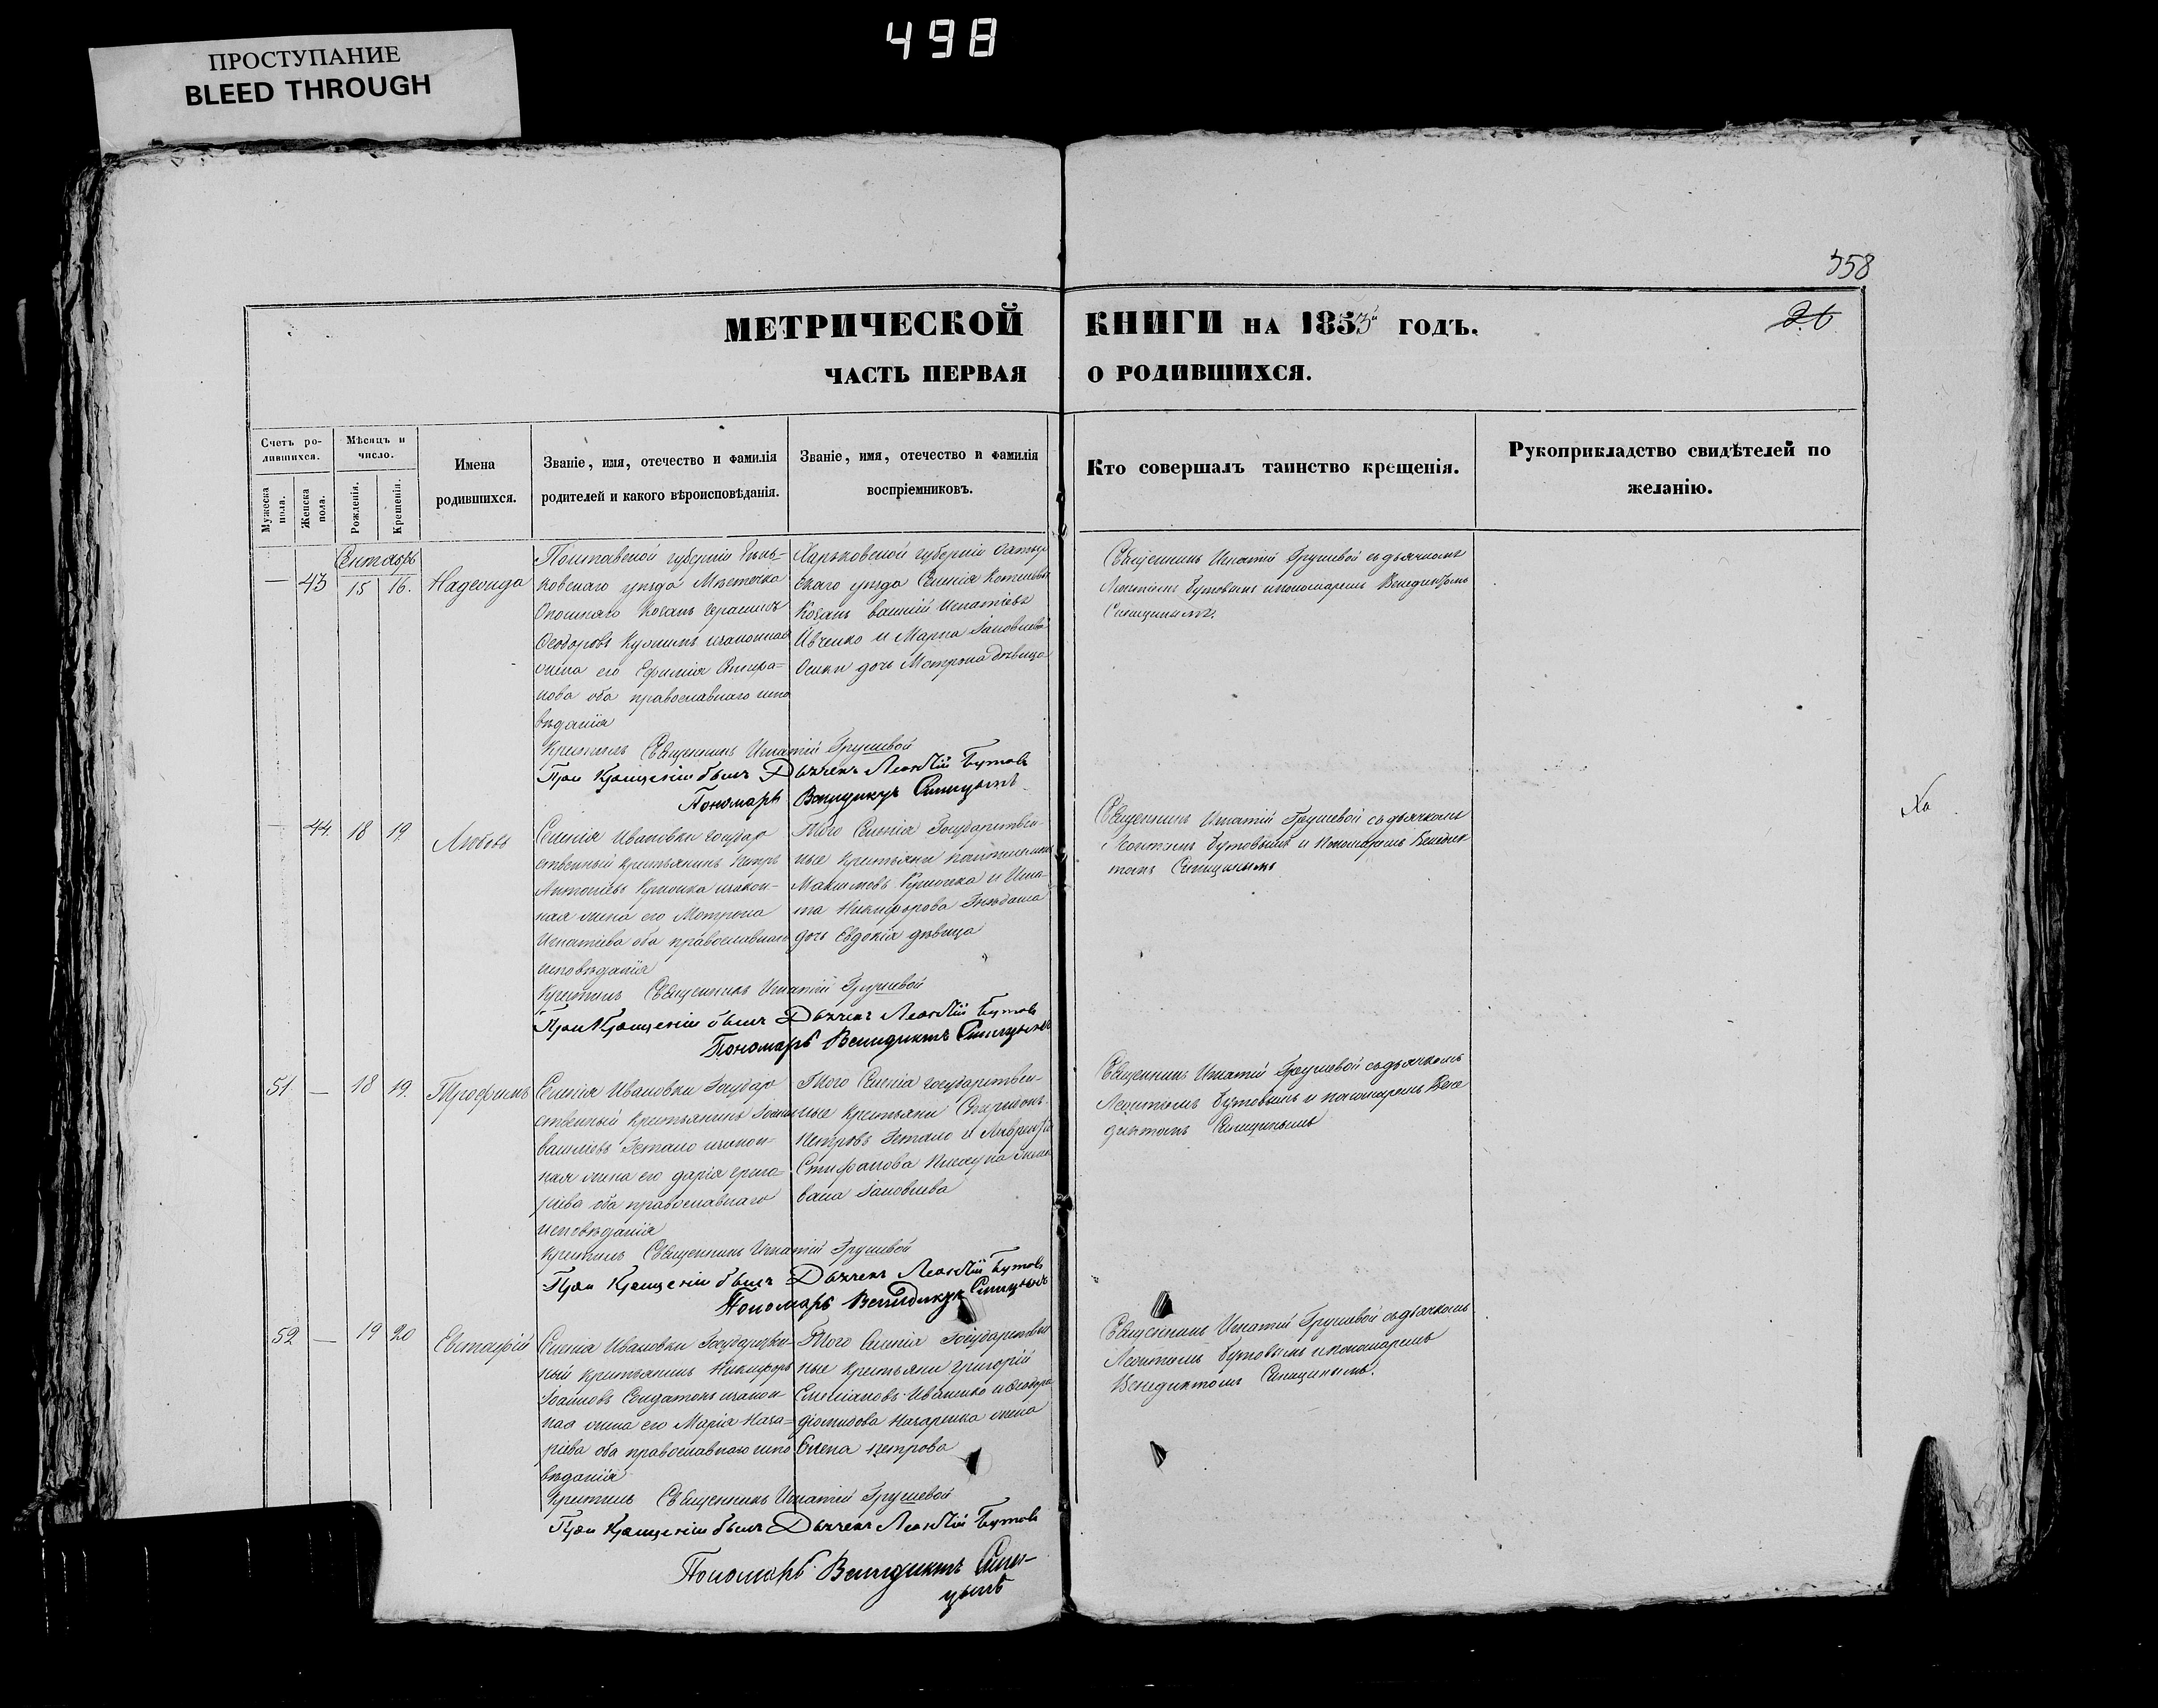 498
ПРОСТУПАНИЕ
BLEED THROUGH
358
26
МЕТРИЧЕСКОЙ КНИГИ НА 1853 ГОДЪ.
ЧАСТЬ ПЕРВАЯ О РОДИВШИХСЯ.
Счетъ ро-
дившихся.
Мужеска
пола.
Женска
пола.
Мѣсяцъ и
число.
Рожденія.
Крещенія.
Имена
родившихся.
Званіе, имя, отечество и фамилія
родителей и какого вѣроисповѣданія.
Званіе, имя, отечество и фамилія
воспріемниковъ.
Кто совершалъ таинство крещенія.
Рукоприкладство свидѣтелей по
желанію.
Сентябрь
— 43 15 16. Надежда
Полтавской губерніи Зинь-
ковскаго уѣзда Мѣстечка
Опошнаго Козакъ Герасимъ
Феодоровъ изаконная
жена его Ефимія
нова оба православнаго испо
вѣданія
Харьковской губерніи Ахтыр
скаго уѣзда Селенія
Козакъ Игнатіевъ
Ивченко и Марка Іаковлева
дочь Мотрона дѣвица
Священникъ Игнатій Грушевой съ дьячкомъ
Леонтіемъ Бутовымъ и пономаремъ Венедиктомъ
Синицынымъ.
Крестилъ Священникъ Игнатій Грушевой
При Крещеніи былъ Дьячекъ Леонтій Бутовъ
Пономарь Венидиктъ Синицынъ
— 44. 18 19. Любовь
Селенія Ивановки государ
ственный крестьянинъ Петръ
Антоніевъ изакон-
ная жена его Мотрона
Игнатіева оба православнаго
исповѣданія
Того Селенія Государствен-
ные крестьяне
Максимовъ и Игна-
та Никифорова
дочь Евдокія дѣвица
Священникъ Игнатій Грушевой съ дьячкомъ
Леонтіемъ Бутовымъ и Пономаремъ Венедик
томъ Синицынымъ
Крестилъ Священникъ Игнатій Грушевой
При Крещеніи былъ Дьячекъ Леонтій Бутовъ
Пономарь Венидиктъ Синицынъ
51. — 18 19. Трофимъ
Селенія Ивановки Государ
ственный Крестьянинъ Іоаннъ
изакон-
ная жена его Дарія Григо-
ріева оба православнаго
исповѣданія
Того Селенія государствен-
ные Крестьяне Спиридонъ
Петровъ и
Стефанова
Іаковлева
Священникъ Игнатій Грушевой съ дьячкомъ
Леонтіемъ Бутовымъ и пономаремъ Вене
диктомъ Синицынымъ
Крестилъ Священникъ Игнатій Грушевой
При Крещеніи былъ Дьячекъ Леонтій Бутовъ
Пономарь Венидиктъ Синицынъ
52 — 19 20 Евстафій
Селенія Ивановки Государствен-
ный крестьянинъ Никифоръ
Іоанновъ изакон
ная жена его Марія Наза-
ріева оба православнаго испо
вѣданія
Того Селенія Государствен
ные Крестьяне Григорій
Иваненко и Феодора
Назаренка жена
Елена Петрова
Священникъ Игнатій Грушевой съ дьячкомъ
Леонтіемъ Бутовымъ и пономаремъ
Венедиктомъ Синицынымъ.
Крестилъ Священникъ Игнатій Грушевой
При Крещеніи былъ Дьячекъ Леонтій Бутовъ
Пономарь Венидиктъ Сини-
цынъ